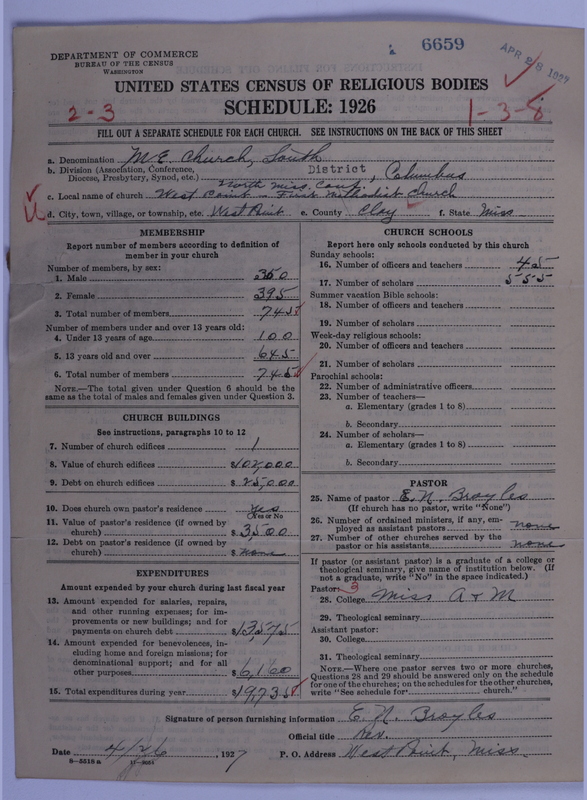 6659
APR 28 1927
DEPARTMENT OF COMMERCE
BUREAU OF THE CENSUS
WASHINGTON
UNITED STATES CENSUS OF RELIGIOUS BODIES
SCHEDULE: 1926
2-3
1-3-8
FILL OUT A SEPARATE SCHEDULE FOR EACH CHURCH. SEE INSTRUCTIONS ON THE BACK OF THIS SHEET
a. Denomination M.E. Church, South
b. Division (Association, Conference, Diocese, Presbytery, Synod, etc.) North Miss. Conf. District, Columbus
c. Local name of church West Point First Methodist Church
d. City, town, village, or township, etc. West Point e. County Clay f. State Miss
MEMBERSHIP
Report number of members according to definition of
member in your church
Number of members, by sex:
1. Male 350
2. Female 395
3. Total number of members 745
Number of members under and over 13 years old:
4. Under 13 years of age 100
5. 13 years old and over 645
6. Total number of members 745
NOTE.—The total given under Question 6 should be the
same as the total of males and females given under Question 3.
CHURCH BUILDINGS
See instructions, paragraphs 10 to 12
7. Number of church edifices 1
8. Value of church edifices $102,000
9. Debt on church edifices $25,000
10. Does church own pastor's residence yes
(Yes or No
11. Value of pastor's residence (if owned by
church) $3,500
12. Debt on pastor's residence (if owned by
church) $ none
EXPENDITURES
Amount expended by your church during last fiscal year
13. Amount expended for salaries, repairs,
and other running expenses; for im-
provements or new buildings; and for
payments on church debt $13,575
14. Amount expended for benevolences, in-
cluding home and foreign missions; for
denominational support; and for all
other purposes $6,160
15. Total expenditures during year $19,735
CHURCH SCHOOLS
Report here only schools conducted by this church
Sunday schools:
16. Number of officers and teachers 45
17. Number of scholars 555
Summer vacation Bible schools:
18. Number of officers and teachers
19. Number of scholars
Week-day religious schools:
20. Number of officers and teachers
21. Number of scholars
Parochial schools:
22. Number of administrative officers
23. Number of teachers—
a. Elementary (grades 1 to 8)
b. Secondary
24. Number of scholars—
a. Elementary (grades 1 to 8)
b. Secondary
PASTOR
25. Name of pastor E. N. Broyles
(If church has no pastor, write "None")
26. Number of ordained ministers, if any, em-
ployed as assistant pastors none
27. Number of other churches served by the
pastor or his assistants none
If pastor (or assistant pastor) is a graduate of a college or
theological seminary, give name of institution below. (If
not a graduate, write "No" in the space indicated.)
Pastor: 3
28. College Miss A & M
29. Theological seminary
Assistant pastor:
30. College
31. Theological seminary
NOTE.—Where one pastor serves two or more churches,
Questions 28 and 29 should be answered only on the schedule
for one of the churches; on the schedules for the other churches,
write "See schedule for church."
Signature of person furnishing information E. N. Broyles
Official title Rev.
Date 4/26 1927 P. O. Address West Point, Miss.
8—5518a